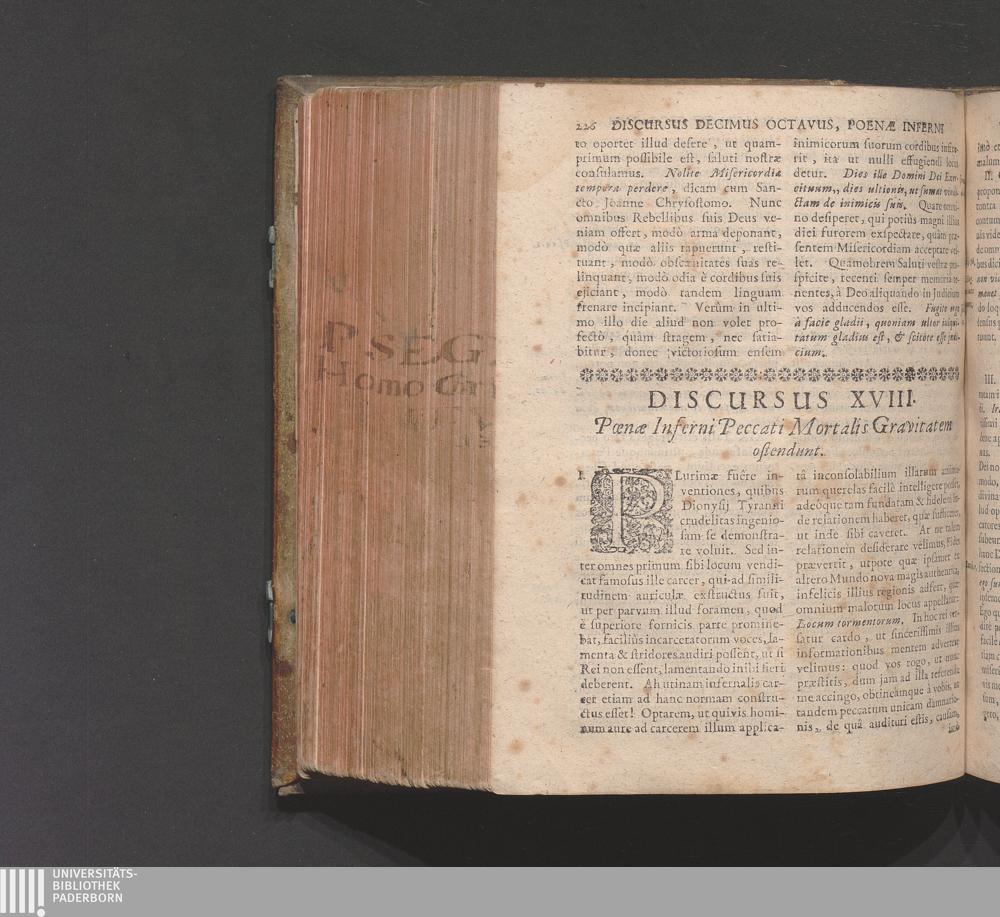 P. SEG
Homo Chr
226 DISCURSUS DECIMUS OCTAVUS, POENÆ INFERNI
to oportet illud desere, ut quam-
primum possibile est, saluti nostræ
consulamus. Nolite Misericordiæ
tempora perdere, dicam cum San-
cto Joanne Chrysostomo. Nunc
omnibus Rebellibus suis Deus ve-
niam offert, modò arma deponant,
modò quæ aliis rapuerunt, resti-
tuant, modò obscænitates suas re-
linquant, modò odia è cordibus suis
ejiciant, modò tandem linguam
frenare incipiant. Verùm in ulti-
mo illo die aliud non volet pro-
fectò, quàm stragem, nec satia-
bitur, donec victoriosum ensem
inimicorum suorum cordibus infixe-
rit, ita ut nulli effugiendi locus
detur. Dies ille Domini Dei Exer-
cituum, dies ultionis, ut sumat vindi-
ctam de inimicis suis. Quare omni-
no desiperet, qui potiùs magni illius
diei furorem exspectare, quàm præ-
sentem Misericordiam acceptare vel-
let. Quamobrem Saluti vestræ pro-
spicite, recenti semper memoria te-
nentes, à Deo aliquando in Judicium
vos adducendos esse. Fugite ergo
à facie gladii, quoniam ultor iniqui-
tatum gladius est, & scitote esse judi-
cium.
DISCURSUS XVIII.
Pœnæ Inferni Peccati Mortalis Gravitatem
ostendunt.
I. PLurimæ fuêre in-
ventiones, quibus
Dionysij Tyranni
crudelitas ingenio-
sam se demonstra-
re voluit. Sed in-
ter omnes primum sibi locum vendi-
cat famosus ille carcer, qui ad simili-
tudinem auriculæ exstructus fuit,
ut per parvum illud foramen, quod
è superiore fornicis parte promine-
bat, faciliùs incarceratorum voces, la-
menta & stridores audiri possent, ut si
Rei non essent, lamentando inibi fieri
deberent. Ah utinam infernalis car-
cer etiam ad hanc normam constru-
ctus esset! Optarem, ut quivis homi-
num aure ad carcerem illum applica-
tâ inconsolabilium illarum anima-
rum querelas facilè intelligere posset,
adeóque tam fundatam & fidelem in-
de relationem haberet, quæ sufficeret,
ut inde sibi caveret. At ne talem
relationem desiderare velimus, Fides
prævertit, utpote quæ ipsamet ex
altero Mundo nova magis authentica,
infelicis illius regionis adfert, quæ
omnium malorum locus appellatur:
Locum tormentorum. In hoc rei ver-
satur cardo, ut sincerissimis illius
informationibus mentem advertere
velimus: quod vos rogo, ut nunc
præstitis, dum jam ad illa referenda
me accingo, obtineámque à vobis, ut
tandem peccatum unicam damnatio-
nis, de quâ audituri estis, causam,
UNIVERSITÄTS-
BIBLIOTHEK
PADERBORN